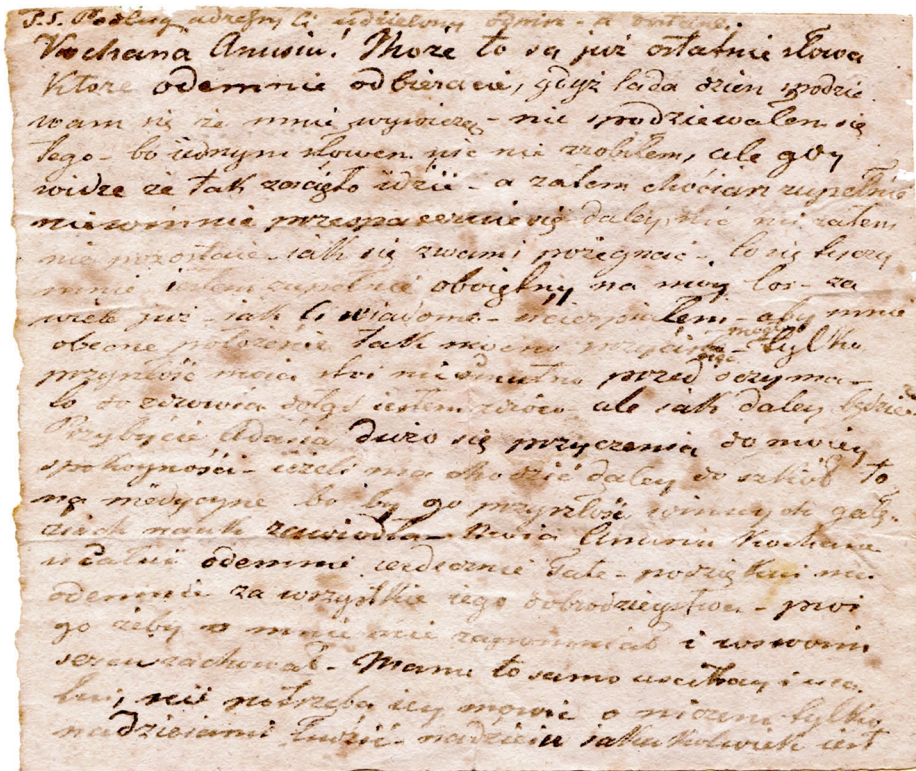 P.S. Podług adresu Ci udzielony odpisz - a dostanę.
Kochana Anusiu! Może to są już ostatnie słowa
które odemnie odbieracie, gdyż lada dzien spodzie
wam się że mnie wywiozą - nie spodziewałem się
tego - bo iednym słowem nic nie zrobiłem, ale gdy
widze że tak zacięto idzie - a zatem chociarz zupełnie
niewinnie się daley nic mi zatem
nie pozostaie - iak się zwami pożegnac - co się tyczy
mnie iestem zupełnie oboiętny na moy los - za
wiele już - iak Ci wiadomo - ucierpiałem - aby mnie
obecne położenie tak mocno mogło - tylko
przyszłość moia stoi mi smutno przed oczyma -
co do zdrowia dotąd iestem zdrów - ale iak daley będzie
Przybycie Adasia dużo się przyczenia do moiey
spokoyności - ieżeli ma chodzić daley do szkół to
na medycynę bo by go przyszłość winnych gałę-
ziach nauk zawiodła - Moia Anusiu Kochana
ucałuii odemnie serdecznie Tatę - podziękui mu
odemnie za wszystkie iego dobrodzieystwa - proś
go żeby o mnie nie zapomniał i wswoim
sercu zachował - Mamę to samo uścikay i uca
łui, nie potrzeba iey mowić o niczem tylko
nadzieiami łudzić - nadzieia iakakolwiek iest